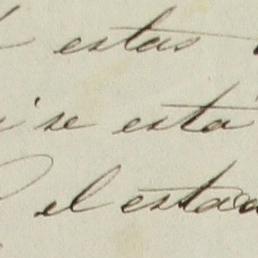 estas
se esta
el estad